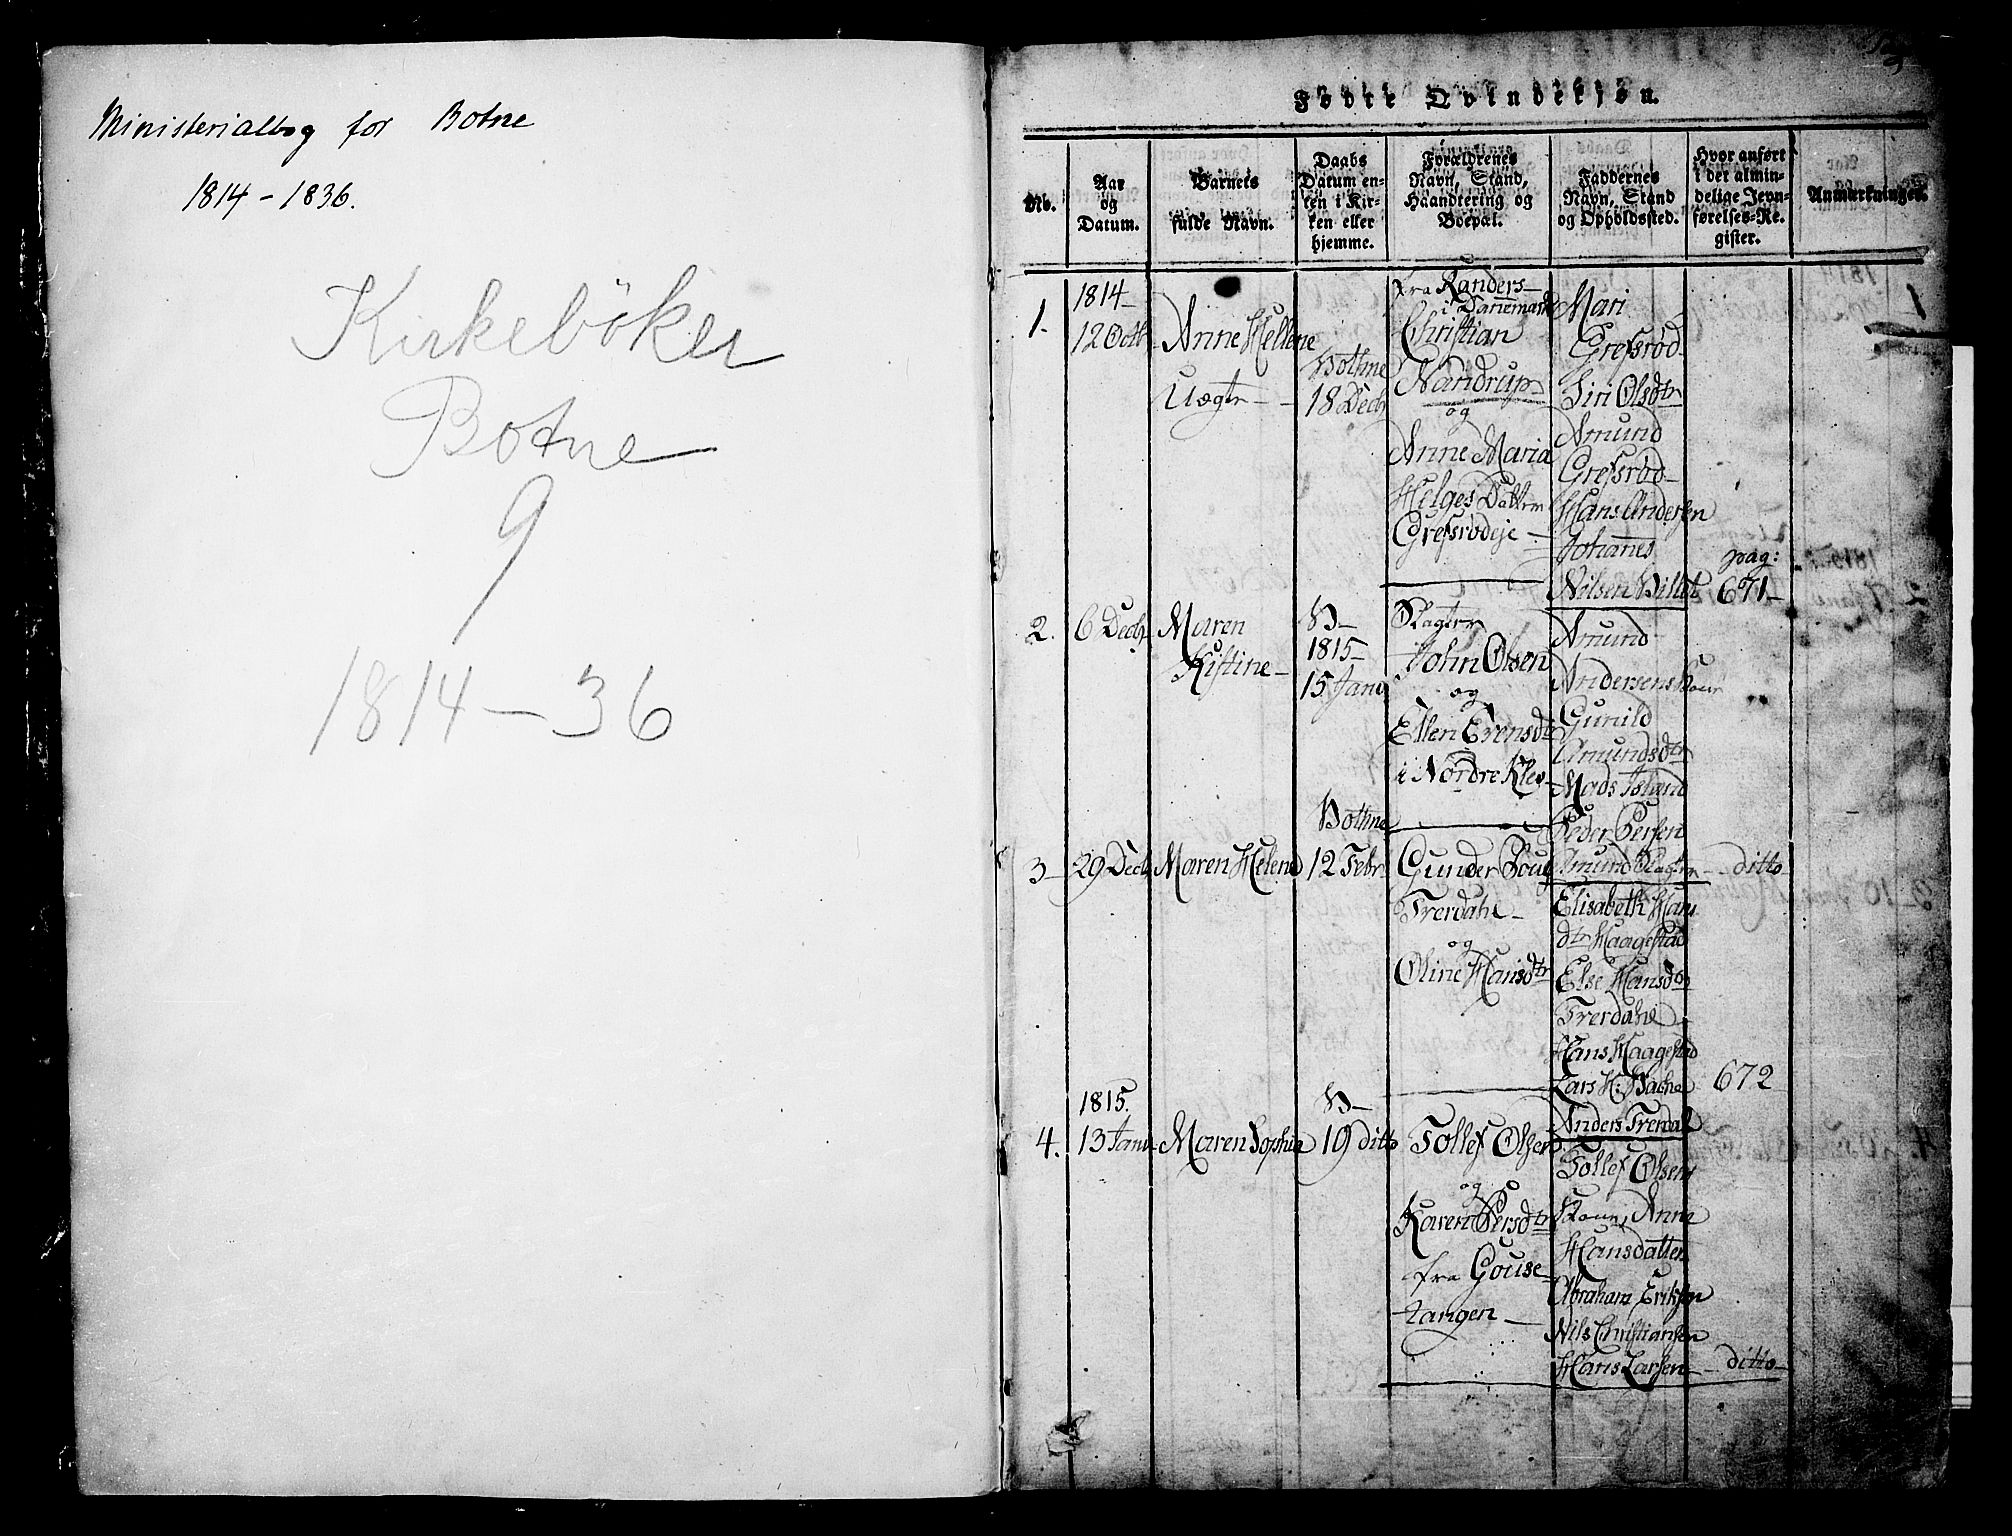 Ministerialbog for Botne
1814 - 1836.
Kirkeböker
Botne
9
1814 - 36
Fødte Qvindekjøn.
No.
Aar
og
Datum.
Barnets
fulde Navn.
Daabs
Datum en-
ten i Kir-
ken eller
hjemme.
Forældrenes
Navn, Stand,
Haandtering og
Boepæl.
Faddernes
Navn, Stand
og Opholdssted.
Hvor anført
i det almin-
delige Jevn-
førelses-Re-
gister.
Anmærkninger.
1.
1814-
12 Octb
Anne Hellene
Uægte -
Bothne
18 Decbr
fra Randers
i Danemark
Christian
Nandrup
og
Anne Maria
Helges Datter
Grefsrødeje -
Mari
Grefsrød
Siri Olsdtr
Amund
Grefsrød-
Hans Andersen
Johannes
Nilsen
pag:
671-
2.
6 Decbr
Maren
Kistine -
B-
1815-
15 Janu
John Olsen
og
Ellen Evensdtr
i Nordre Klev-
Amund
Andersen
Gunild
Amundsdtr
Mads
Peder Persen
Amund
ditto
3-
29 Decb
Maren Helene
Bothne
12 Febr.
Gunder Poul
Trerdahl -
og
Oline Hansdtr
Elisabeth Hans
dtr Haagestad
Else Hansdtr
Trerdahl
Hans Haagestad
Lars H: Bache
Anders Trerdal
672
4.
1815.
13 Janu
Maren Sophia
B-
19 ditto
Tollef Olsen
og
Karen Persdtr
fra Gouse-
tangen -
Tollef Olsens
Kone, Anne
Hansdatter
Abraham Eriksen
Nils Christiansen
Hans Larsen -
ditto -